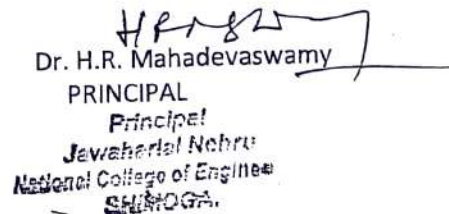 Dr. H.R. Mahadevaswamy
PRINCIPAL
Principal
Jawaharlal Nehru
National College of Enginee
SHIMOGA.